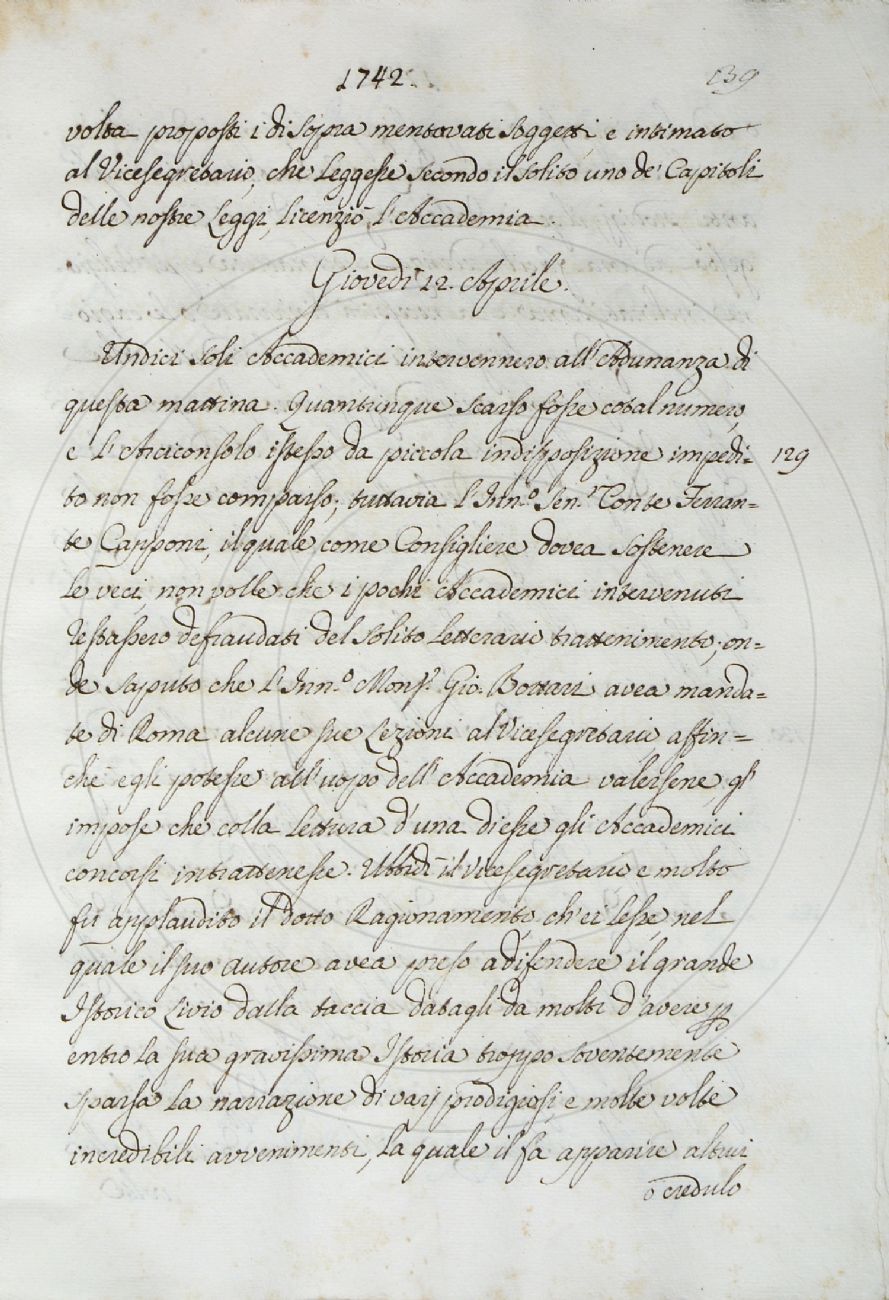 1742.
139
volta proposti i di sopra mentovati soggetti, e intimato
al Vicesegretario, che leggesse secondo il solito uno de' Capitoli
delle nostre Leggi, licenziò l'Accademia.
Giovedì 12. Aprile.
Undici soli Accademici intervennero all'Adunanza di
questa mattina. Quantunque scarso fosse cotal numero,
e l'Arciconsolo istesso da piccola indisposizione impedi=
129
to non fosse comparso; tuttavia l'Inn.º Sen.r Conte Ferran=
te Capponi, il quale come Consigliere dovea sostenere
le veci, non volle che i pochi Accademici intervenuti
restassero defraudati del solito letterario trattenimento; on=
de saputo che l'Inn.º Mons.r Gio. Bottari avea manda=
te di Roma alcune sue Lezioni al Vicesegretario, affin=
chè egli potesse all'uopo dell'Accademia valersene, gl'
impose che colla lettura d'una di esse gli Accademici
concorsi intrattenesse. Ubbidì il Vicesegretario e molto
fu applaudito il dotto Ragionamento, ch'ei lesse, nel
quale il suo autore avea preso a difendere il grande
Istorico Livio dalla taccia datagli da molti d'avere p
entro la sua gravissima Istoria troppo soventemente
sparsa la narrazione di varj prodigiosi, e molte volte
incredibili avvenimenti, la quale il fa apparire altrui
o credulo